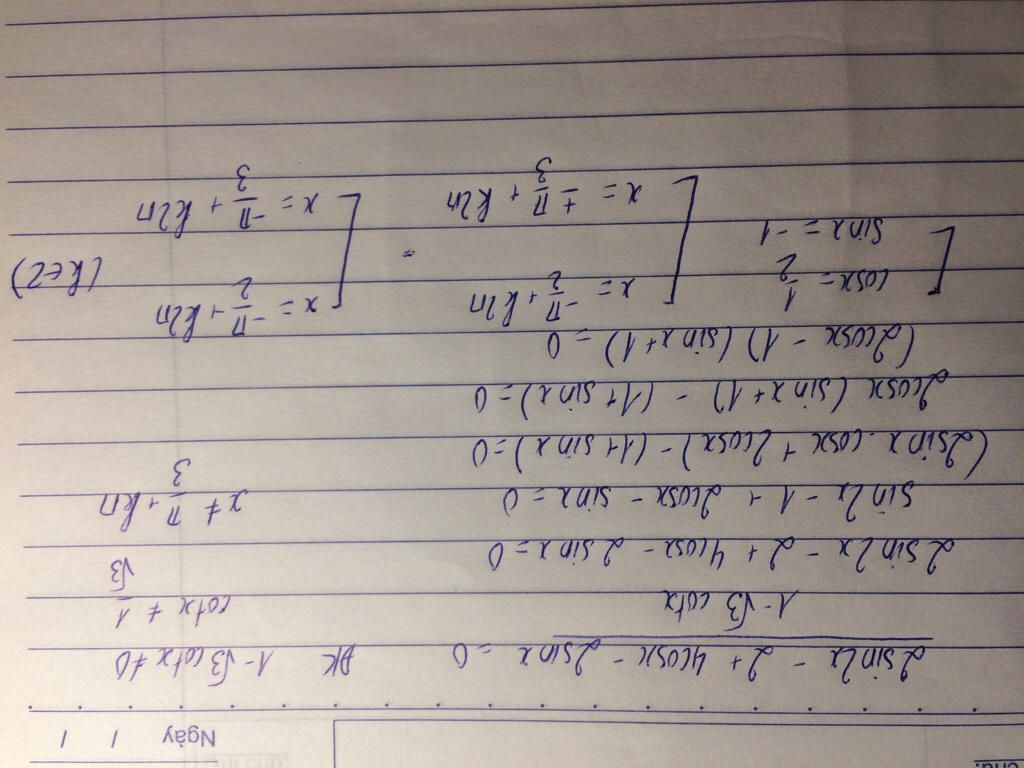 Ngày / /
2sin2x - 2 + 4cosx - 2sinx = 0 ĐK 1 - √3 cotx ≠ 0
1 - √3 cotx
cotx ≠ 1/√3
2sin2x - 2 + 4cosx - 2sinx = 0
sin2x - 1 + 2cosx - sinx = 0 x ≠ π/3 + kπ
(2sinx.cosx + 2cosx) - (1 + sinx) = 0
2cosx (sinx + 1) - (1 + sinx) = 0
(2cosx - 1) (sinx + 1) = 0
[ cosx = 1/2 [ x = -π/2 + k2π = [ x = -π/2 + k2π (k∈Z)
sinx = -1 x = ±π/3 + k2π x = -π/3 + k2π